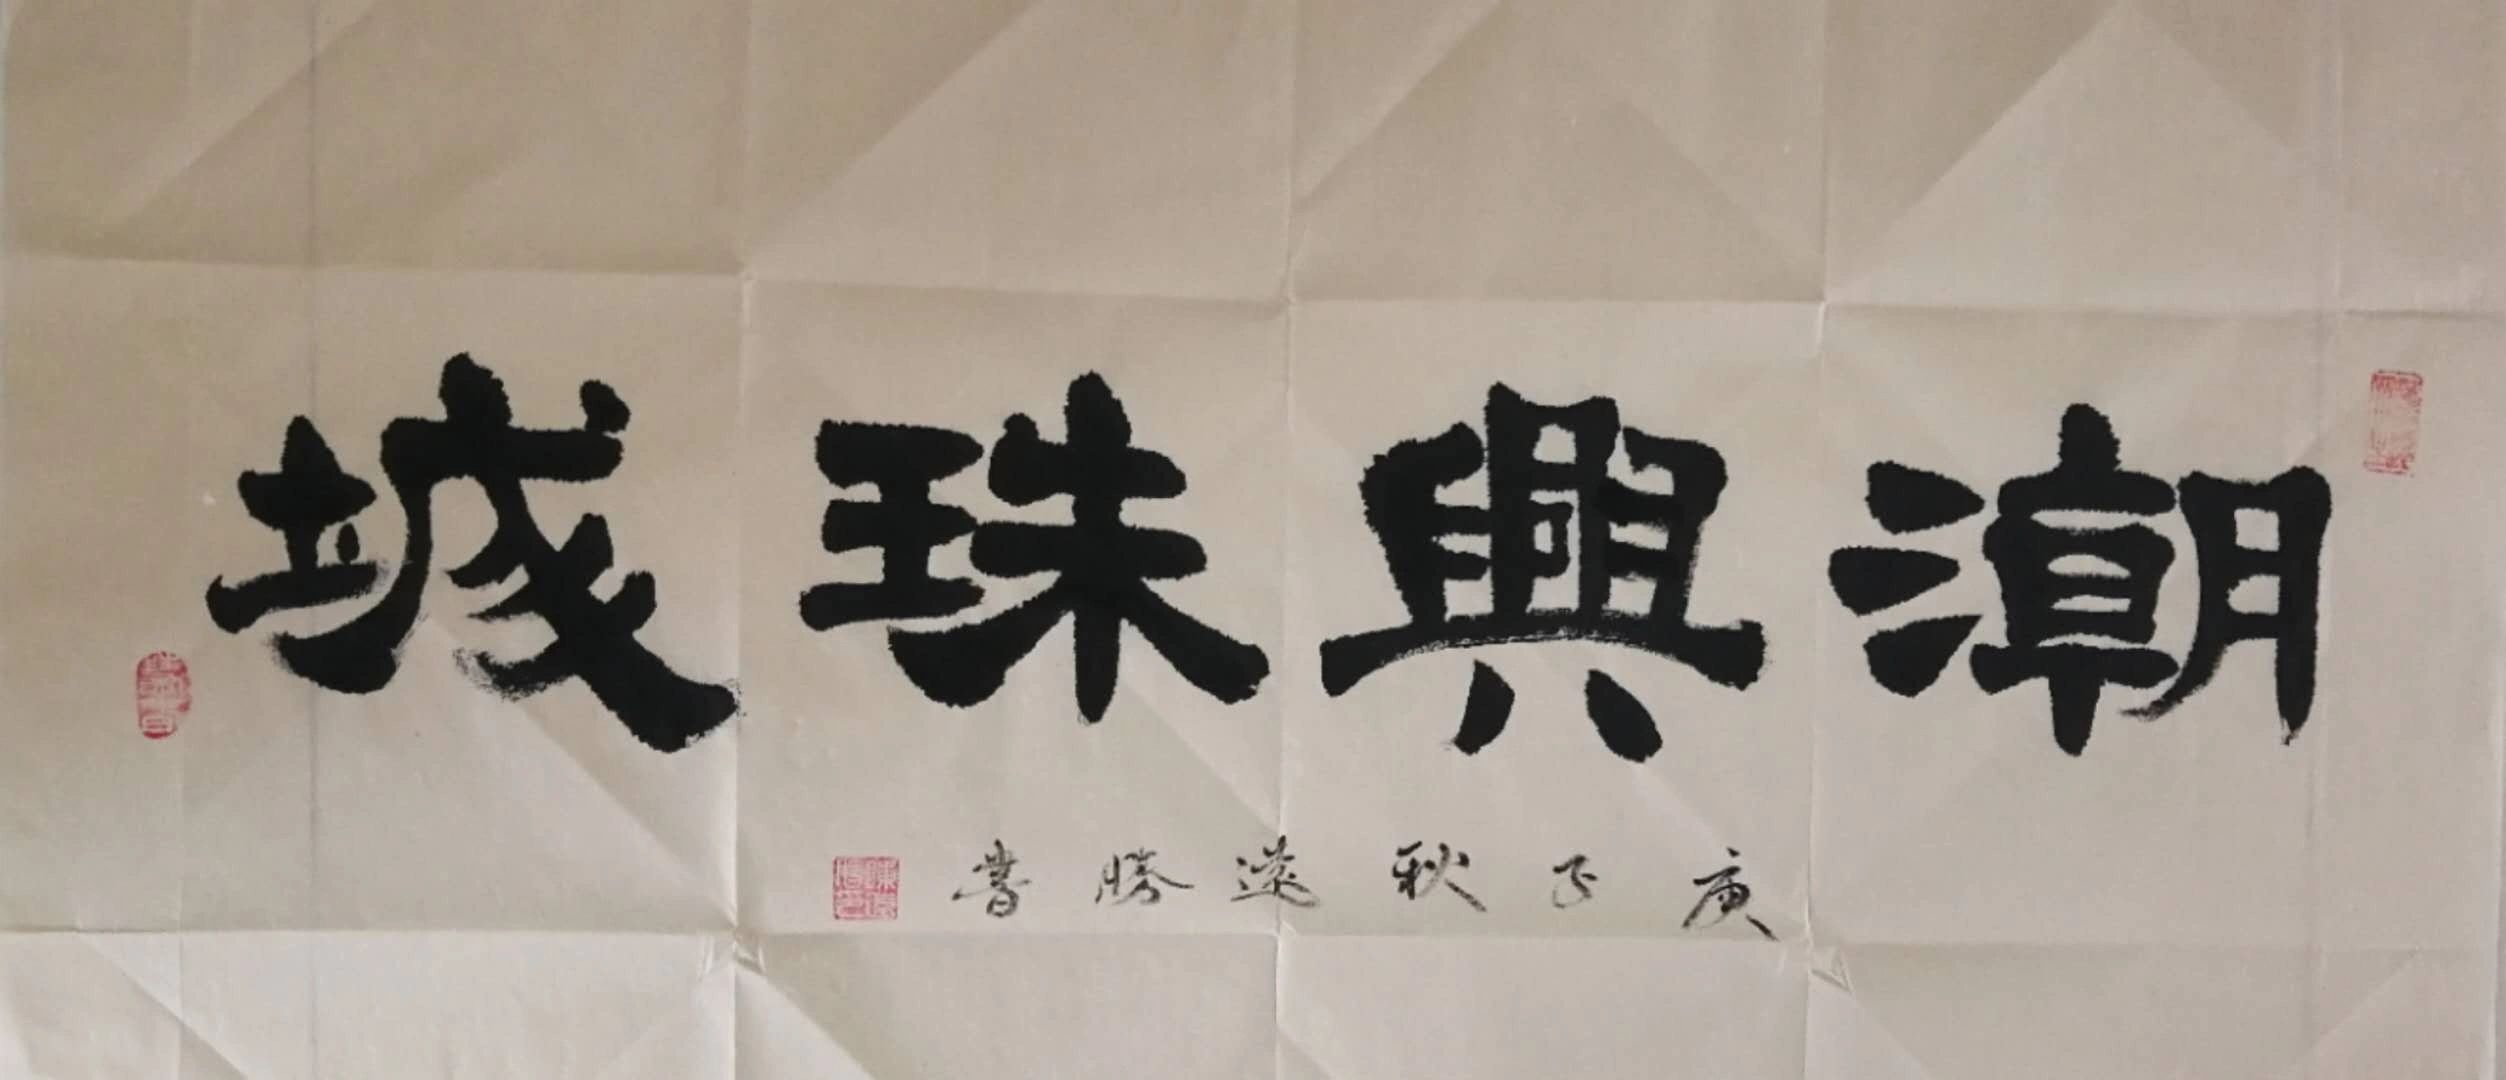 潮興珠城
庚子秋遠勝書